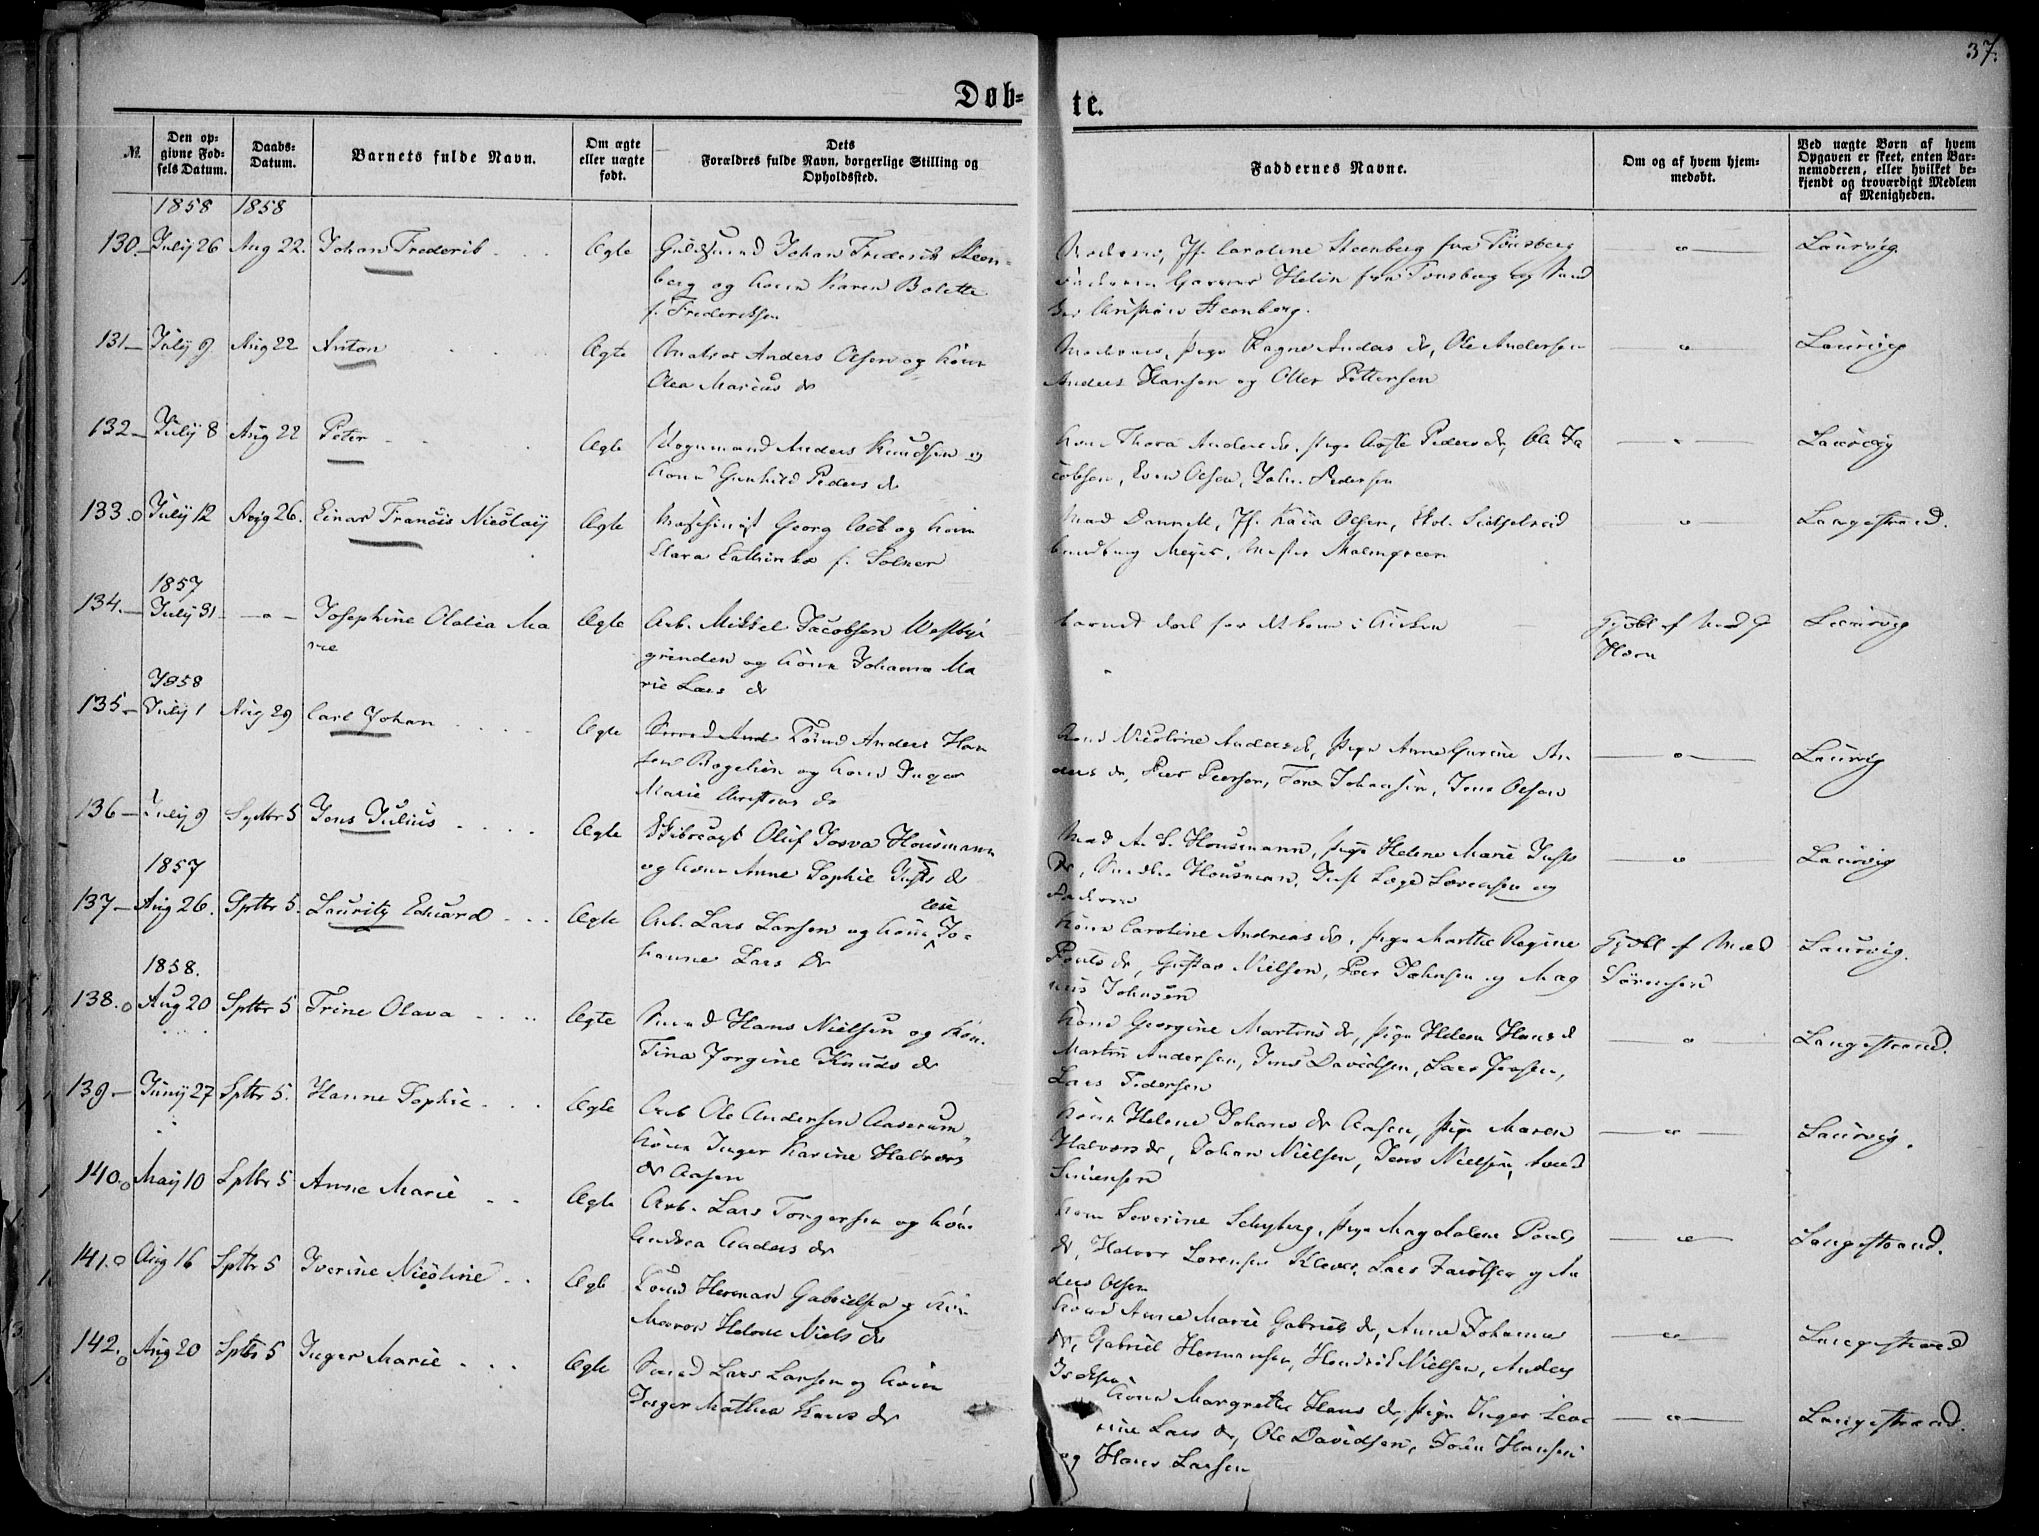 37.
Døb=
te.
№.
Den op-
givne Fød-
sels Datum.
Daabs-
Datum.
Barnets fulde Navn.
Om ægte
eller uægte
født.
Dets
Forældres fulde Navn, borgerlige Stilling og
Opholdssted.
Faddernes Navne.
Om og af hvem hjem-
medøbt.
Ved uægte Børn af hvem
Opgaven er skeet, enten Bar-
nemoderen, eller hvilket be-
kjendt og troværdigt Medlem
af Menigheden.
1858 1858
130. July 26 Aug 22. Johan Frederik Ægte Johan Frederik Steen-
berg og Kone Karen Bolette
f. Frederiksen
Caroline Steenberg fra Tönsberg
Helin fra Tönsberg og
Steenberg.
Laurvig.
131 July 9 Aug 22 Anton Ægte Matros Anders Olsen og Kone
Olea Marcus dr
Pige Ragne Anders dr, Ole Andersen
Anders Hansen og Oller Pettersen
Laurvig
132 July 8 Aug 22 Peter Ægte Vognmand Anders Knudsen og
Kone Gunhild Peders dr
Kone Thora Anders dr, Pige Aaste Peders dr, Ole Ja
cobsen, Even Olsen, Johs. Pedersen
Laurvig
133. July 12 Aug 26. Einar Francis Nicolaij Ægte Maschinist Georg og Kone
Clara Cathinka f. Solner
Mad Jf. Kaia Olsen,
Meyer, Malmgreen
Langestrand.
1857
134. July 31 Josephine Olalia Ma
rie
Ægte Arb. Mikkel Jacobsen Westby
grinden og Kone Johanna Ma
rie Lars dr
Barnet død før det kom i Kirken
Gjdbt af Mad
Horn
Laurvig
1858
135 July 1 Aug 29 Carl Johan Ægte Tömd Anders Han
sen Bøgelien og Kone Inger
Marie Christens dr
Kone Nicoline Anders dr, Pige Anne Gurine An
ders dr, Peer Peersen, Johansen, Jens Olsen
Laurvig
136 July 9 Septbr 5 Jens Julius Ægte Olüf Josva Housmann
og Kone Anne Sophie Justs dr
Mad A. S. Housmann, Pige Helene Marie Justs
dr, Housman, Just Lage Sørensen og
Faderen
Laurvig
1857
137 Aug 26. Sptbr 5. Lauritz Eduard Ægte Arb. Lars Larsen og Kone Jo-
hanne Lars dr
Kone Caroline Andreas dr, Pige Marthe Regine
Pouls dr, Gustav Nielsen, Peer Johnsen og Mag
nus Johnsen
Gjdbt af Mad
Sörensen
Laurvig.
1858.
138. Aug 20 Sptbr 5 Trine Olava Ægte Smed Hans Nielsen og Kone
Tina Jorgine Knuds dr
Kone Georgine Martins dr, Pige Helena Hans d
Martin Andersen, Jens Davidsen, Lars Jensen,
Lars Pedersen
Langestrand.
139 Juny 27 Sptbr 5. Hanne Sophie Ægte Arb Ole Andersen Aaserum
Kone Inger Karine Halvors
dr Aasen
Kone Helene Johans dr Aasen, Pige Maren
Halvors dr, Johan Nielsen, Jens Nielsen,
Simensen
Laurvig.
140. May 10 Sptbr 5 Anne Marie Ægte Arb. Lars Torgersen og Kone
Andrea Anders dr
Kone Severine Schyberg, Pige Magdalene Pouls
dr, Halvor Sorensen Kleven, Lars Jacobsen og An
ders Olsen
Langestrand.
141. Aug 16 Sptbr 5 Iverine Nicoline Ægte Tömd Herman Gabrielsen og Kone
Maren Helene Niels dr
Kone Anne Marie Gabriels dr, Anne Johanne
dr, Gabriel Hermansen, Hendrik Nielsen, Anders
Isaksen
Langestrand
142. Aug 20 Sptbr 5 Inger Marie Ægte Smed Lars Larsen og Kone
Inger Mathea Hans dr
Kone Margrethe Hans dr, Pige Inger
rine Lars dr, Ole Davidsen, John Hansen
og Hans Larsen
Langestrand.